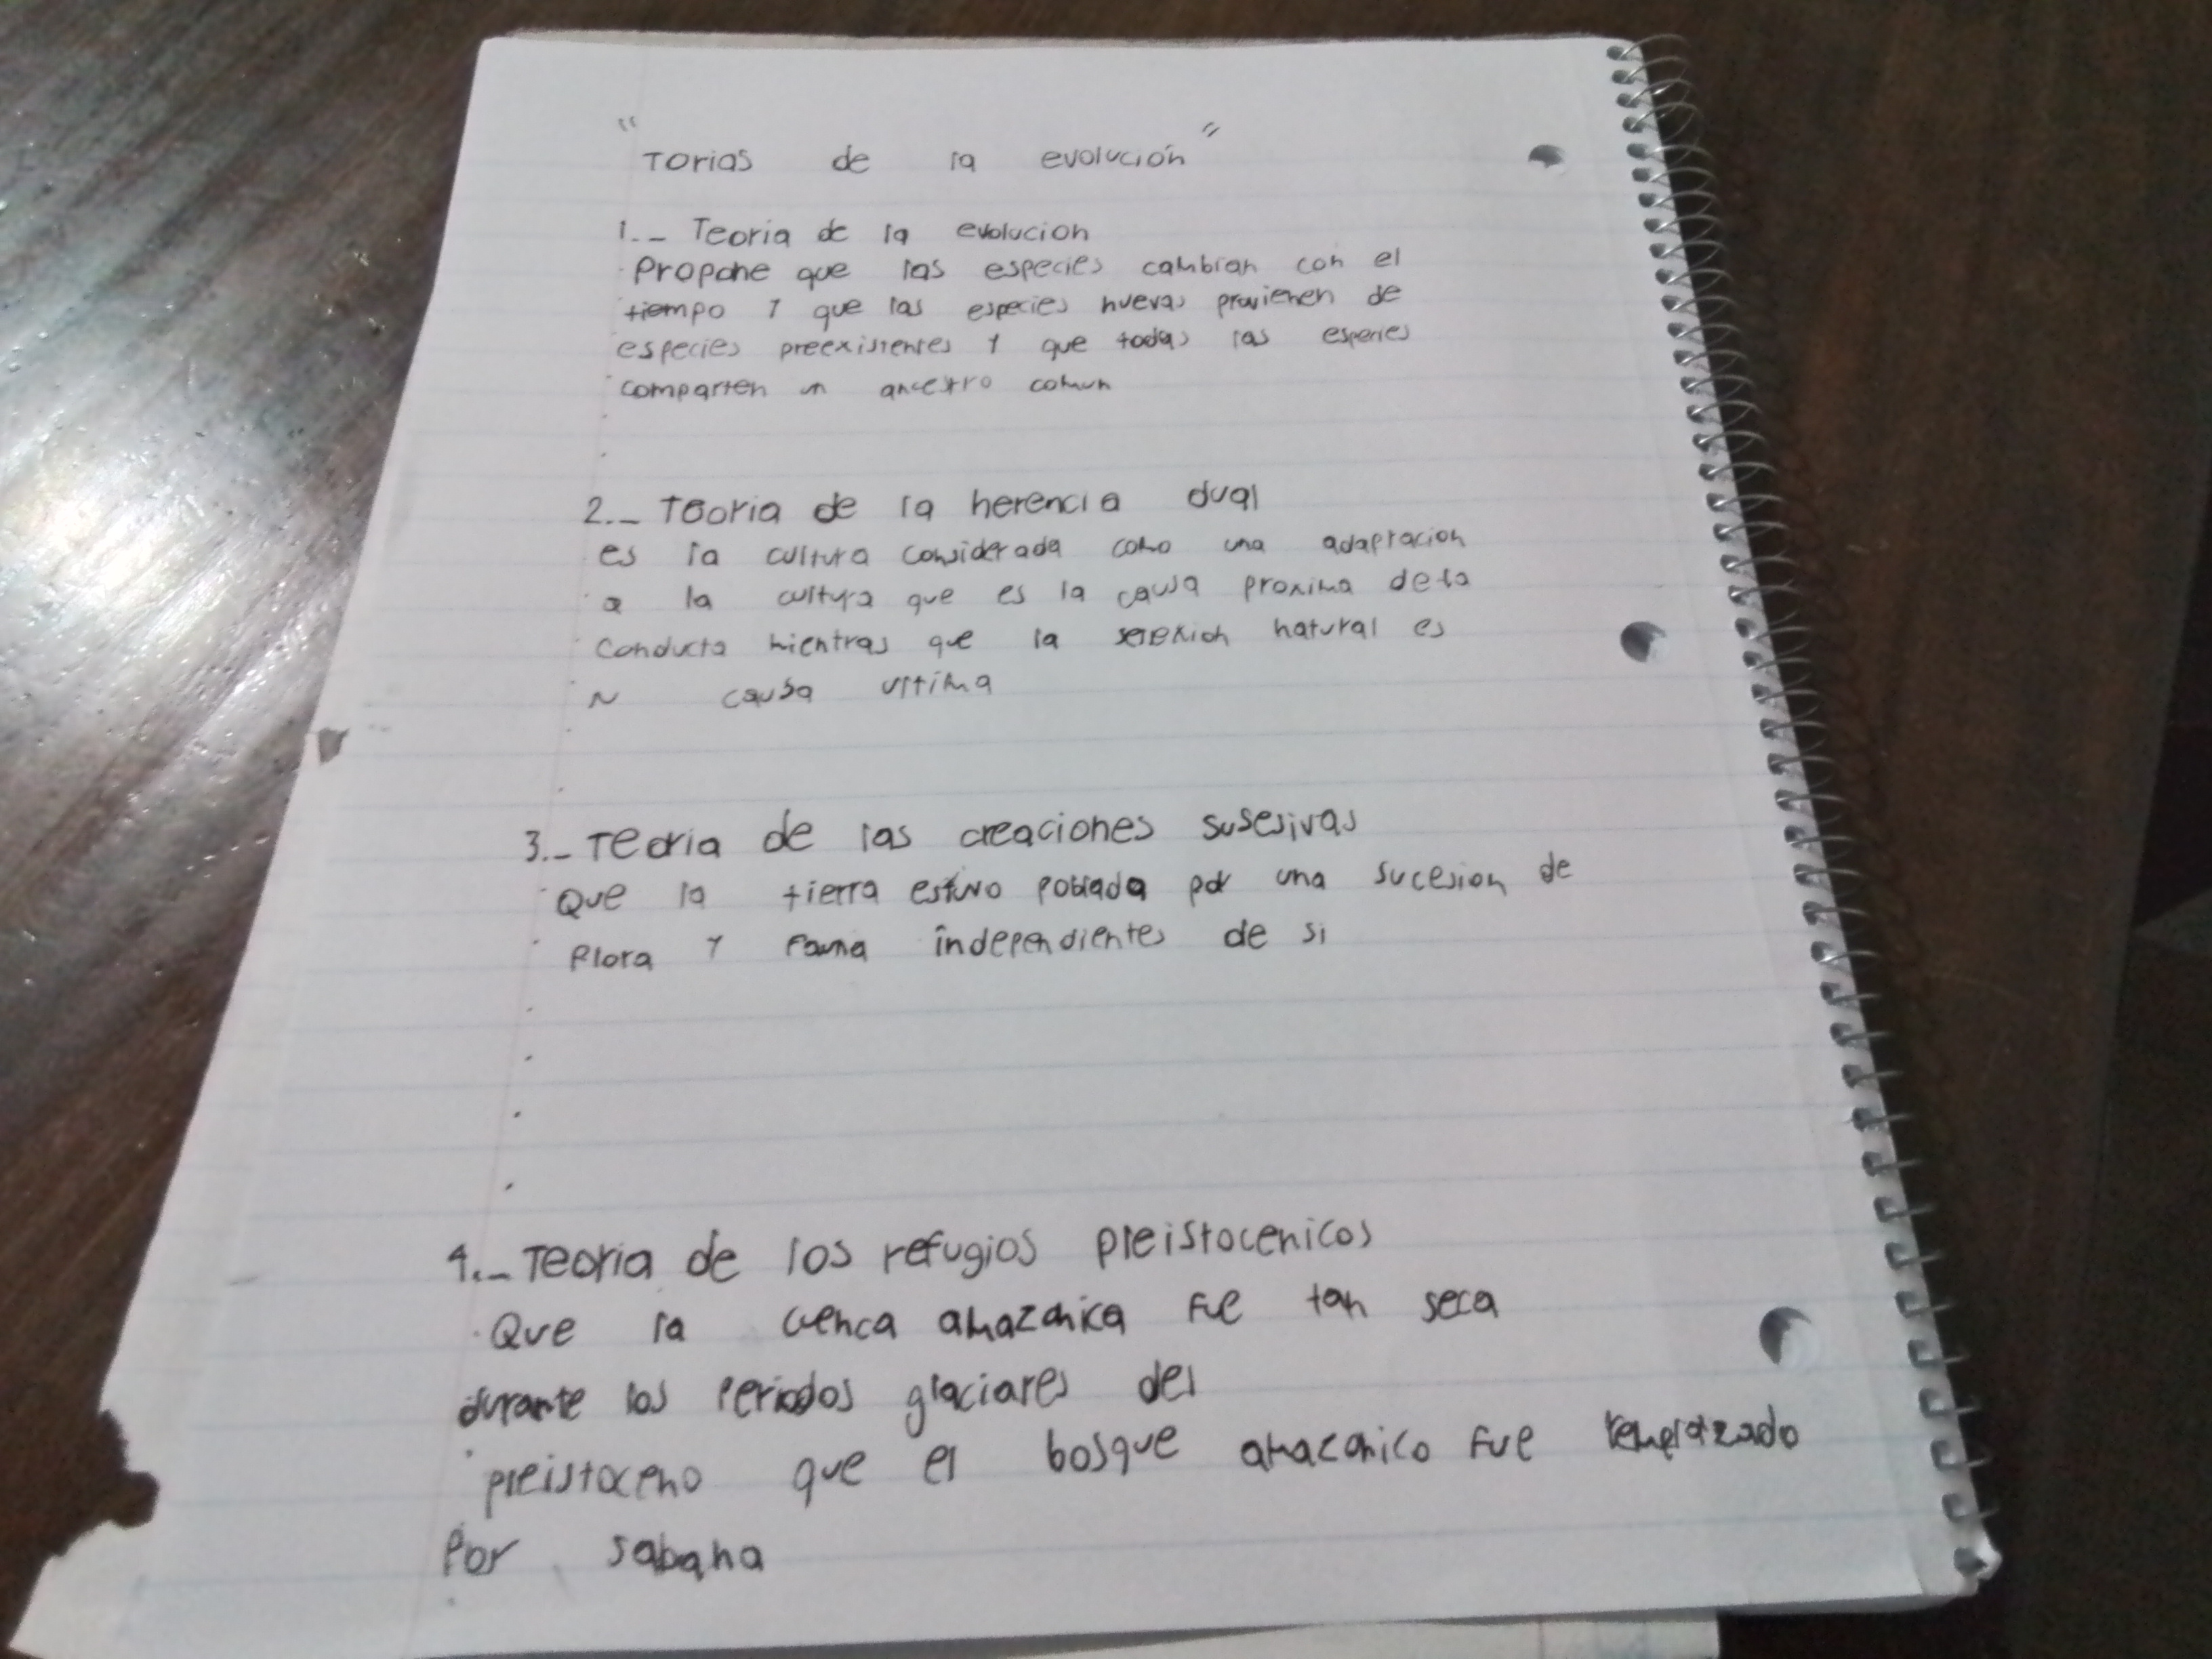 "Torias de la evolución"
1._ Teoria de la evolucion
Propone que las especies cambian con el
tiempo y que las especies nuevas provienen de
especies preexistentes y que todas las especies
comparten un ancestro comun
2._ Teoria de la herencia dual
es la cultura considerada como una adaptacion
a la cultura que es la causa proxima de la
conducta mientras que la natural es
causa ultima
3._ Teoria de las creaciones susesivas
Que la tierra estuvo poblada por una sucesion de
flora y fauna independientes de si
4._ Teoria de los refugios pleistocenicos
Que la cuenca amazonica fue tan seca
durante los periodos glaciares del
pleistoceno que el bosque amazonico fue remplazado
por sabana